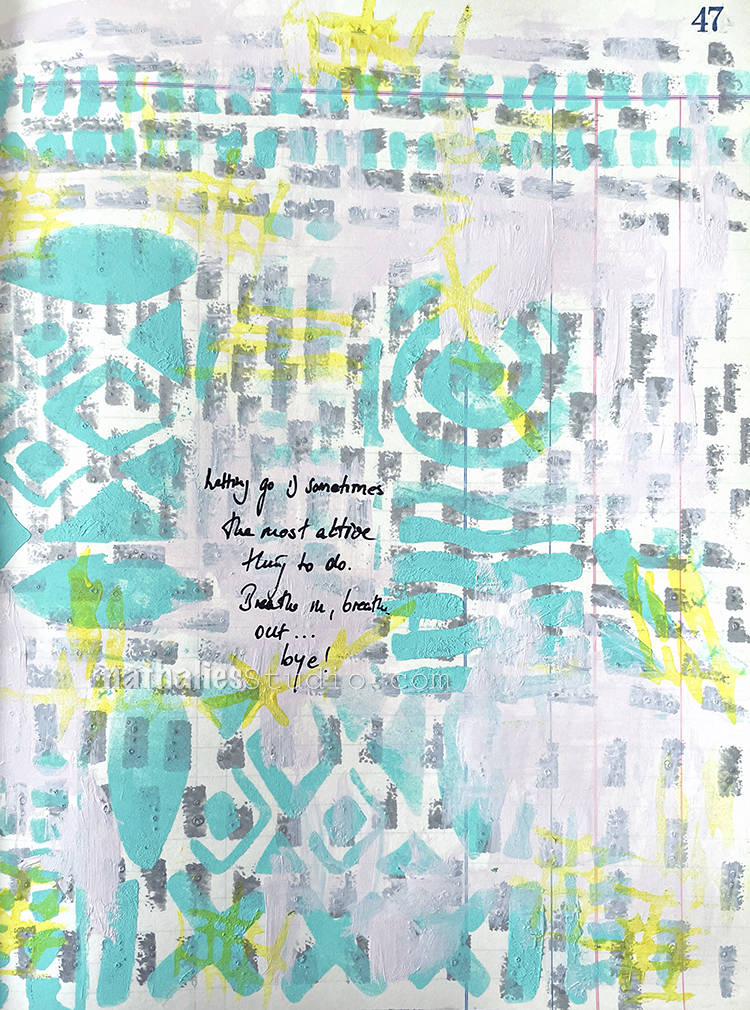 47
Letting go is sometimes
the most active
thing to do.
Breathe in, breathe
out...
bye!
nathaliesstudio.com